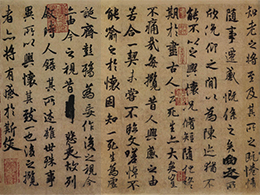 知老之將至及其所之既惓情
隨事遷感慨係之矣向之所
欣俛仰之閒以為陳迹猶不
能不以之興懷況脩短隨化終
期於盡古人云死生亦大矣豈
不痛哉每攬昔人興感之由
若合一契未嘗不臨文嗟悼不
能喻之於懷固知一死生為虛
誕齊彭殤為妄作後之視今
亦由今之視昔悲夫故列
敘時人錄其所述雖世殊事
異所以興懷其致一也後之攬
者亦將有感於斯文